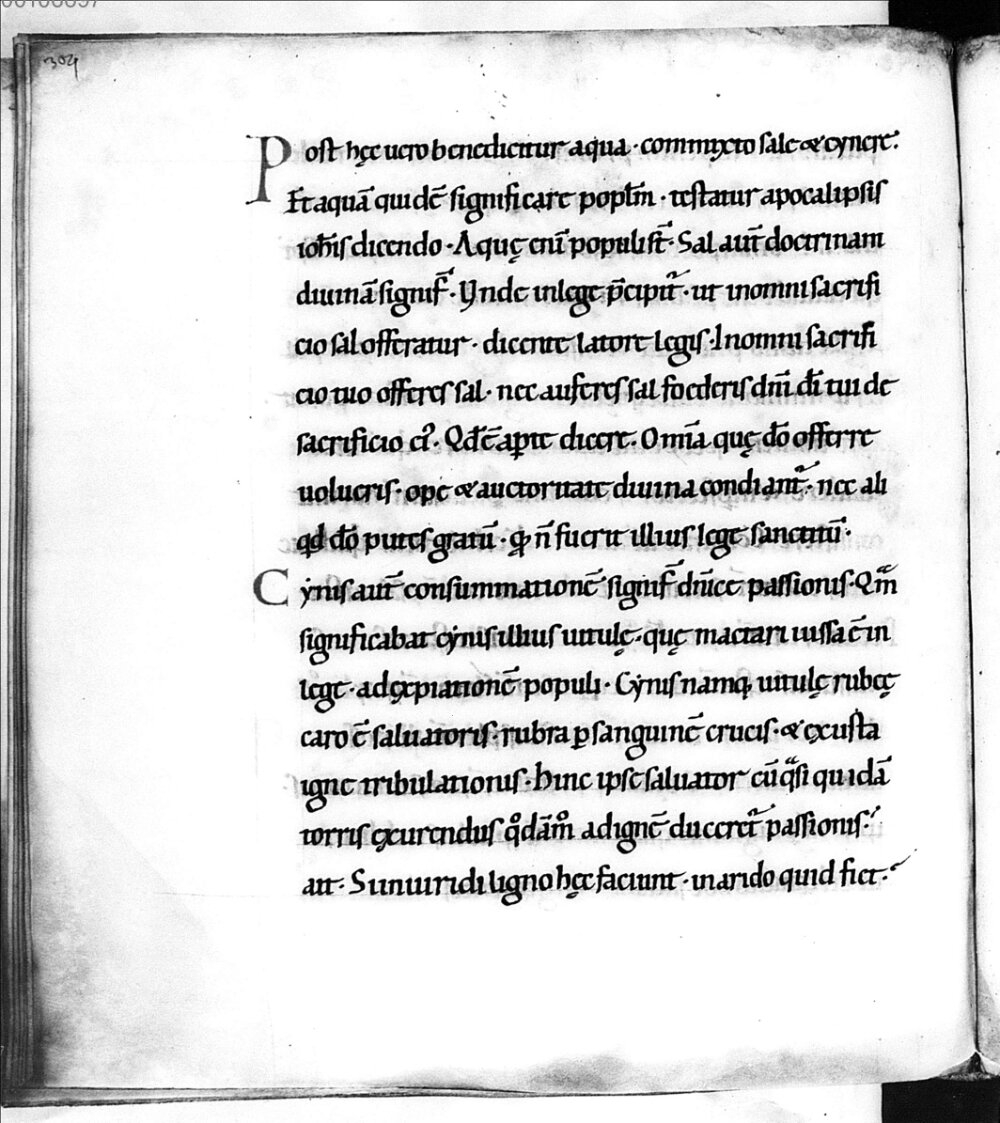 304
Post hęc uero benedicitur aqua · commixto sale & cynere.
Et aquā quidē significare poplm̄ · testatur apocalipsis
ioh̄is dicendo · Aquę enī populi st̄ · Sal aut̄ doctrinam
diuinā signif̄ · Vnde in lege p̄cipit᷑ · ut in omni sacrifi
cio sal offeratur · dicente latore legis · In omni sacrifi
cio tuo offeres sal · nec auferes sal foederis dn̄i dī tui de
sacrificio et᷑ · Qd̄ ē apte dicere · Omīa quę dō offerre
uolueris · ope & auctoritate diuina condiant᷑ · nec ali
qd dō putes gratū · qđ n̄ fuerit illius lege sancitū ·
Cynis aut̄ consummationē signif̄ dn̄icę passionis · Qm̄
significabat cynis illius uitulę · quę mactari iussa ē in
lege · ad ęxpiationē populi · Cynis namq; uitulę rubeę
caro ē saluatoris · rubra p sanguinē crucis · & ęxusta
igne tribulationis · hinc ipse saluator cū qᵃsi quidā
torris ęxurendus qᵒdāmᵒ ad ignē duceret᷑ passionis ·
ait · Si in uiridi ligno hęc faciunt · in arido quid fiet ·